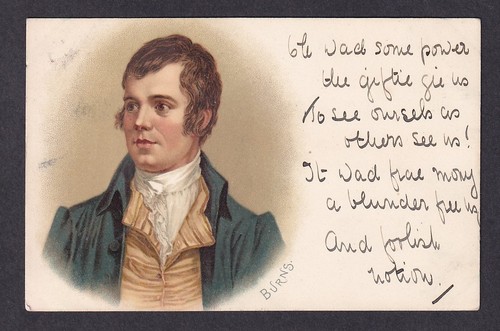 Oh wad some power
the giftie gie us
To see oursels as
others see us!
It wad frae mony
a blunder free us
And foolish
notion.
BURNS.